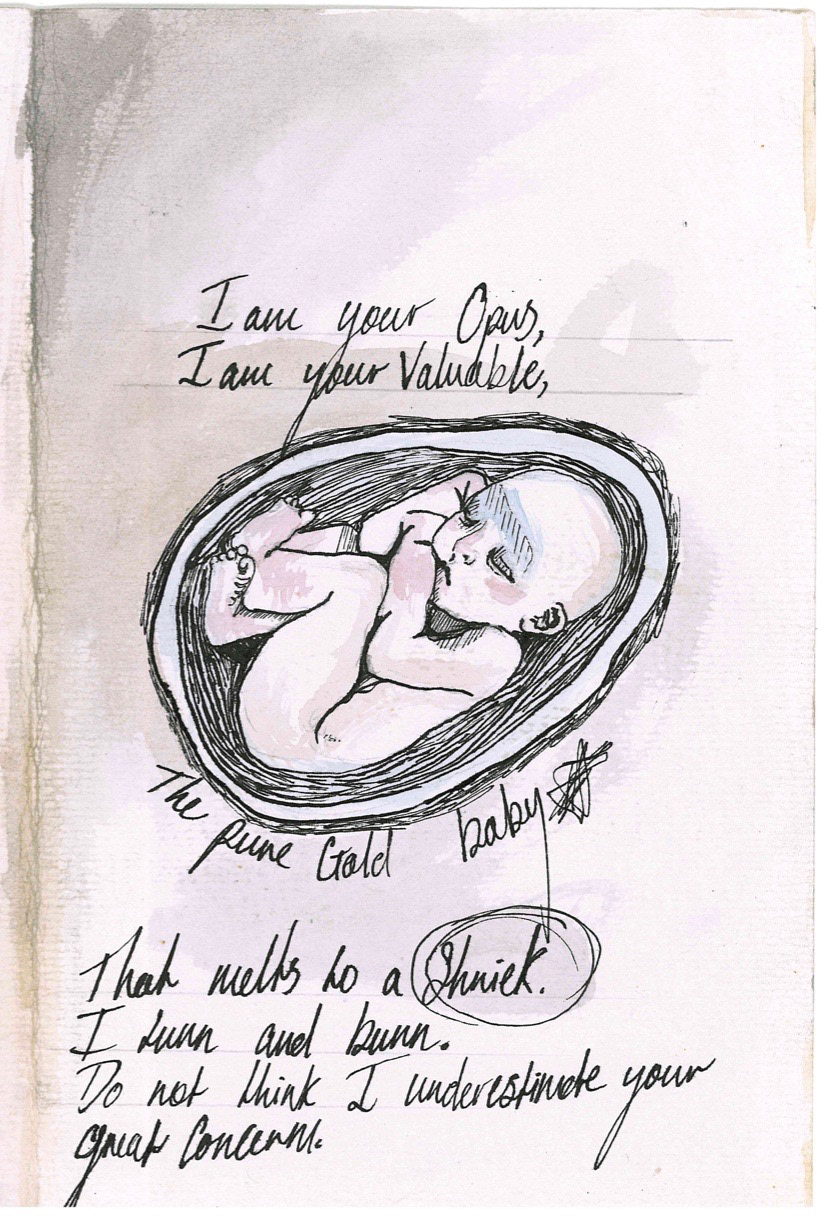 I am your Opus,
I am your Valuable,
The pure Gold baby
That melts to a Shriek.
I turn and burn.
Do not think I underestimate your
great Concern.